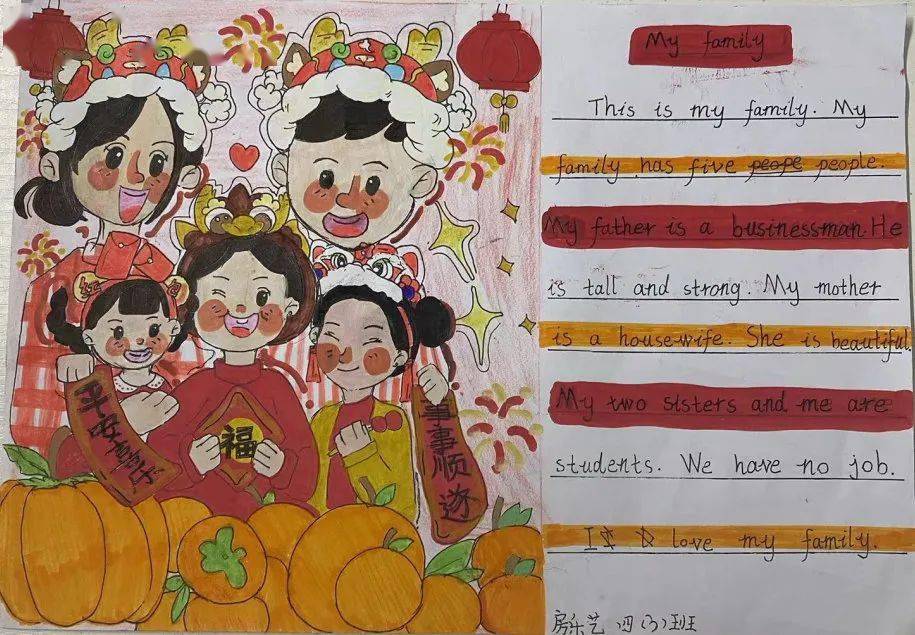 My family
This is my family. My
family has five peope people
My father is a businessman.He
is tall and strong. My mother
is a housewife. She is beautiful.
My two sisters and me are
students. We have no job.
I love my family.
房乐艺 四(3)班
平安喜乐
福
事事顺遂